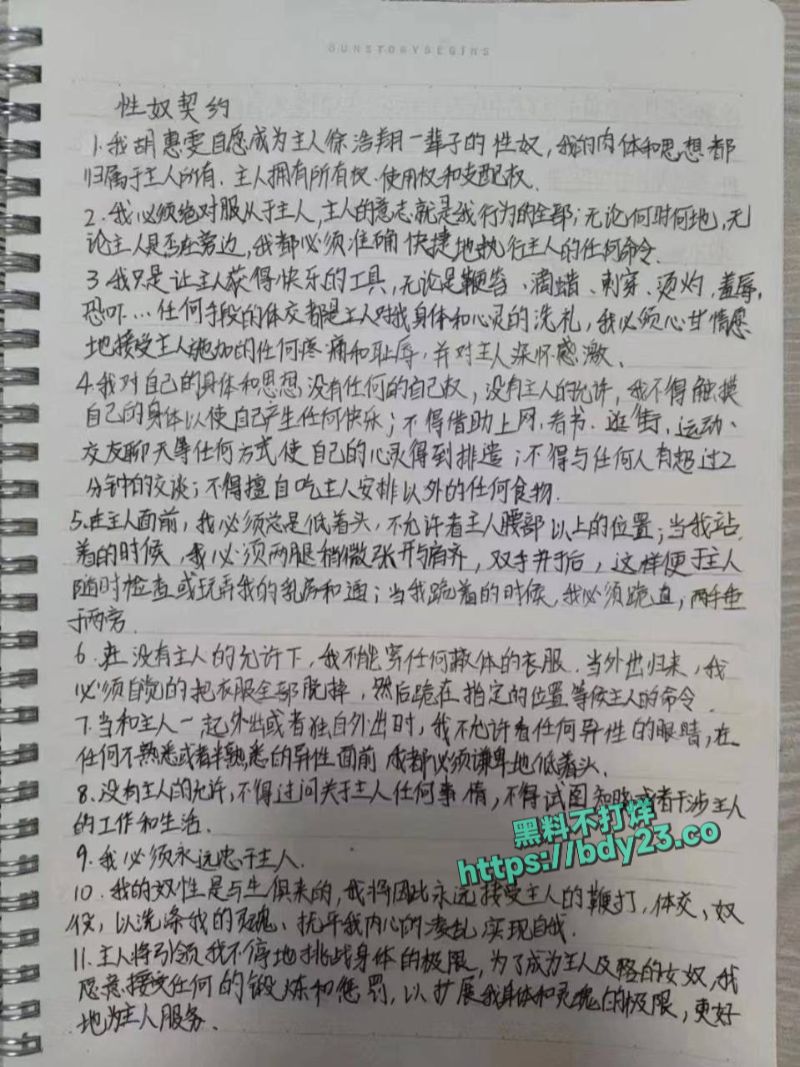 OURSTORYBEGINS
性奴契约
1.我[姓名略]自愿成为主人[姓名略]一辈子的性奴，我的肉体和思想都
归属于主人所有、主人拥有所有权、使用权和支配权、
2.我必须绝对服从于主人，主人的意志就是我行为的全部；无论何时何地，无
论主人是否在旁边，我都必须准确快捷地执行主人的任何命令、
3.我只是让主人获得快乐的工具，无论是鞭笞、滴蜡、刺穿、烫灼、羞辱，
恐吓…任何手段的体交都是主人对我身体和心灵的洗礼，我必须心甘情愿
地接受主人施加的任何疼痛和耻辱，并对主人深怀感激、
4.我对自己的身体和思想没有任何的自己权，没有主人的允许，我不得触摸
自己的身体以使自己产生任何快乐；不得借助上网、看书、逛街、运动、
交友聊天等任何方式使自己的心灵得到排遣；不得与任何人有超过2
分钟的交谈；不得擅自吃主人安排以外的任何食物、
5.在主人面前，我必须总是低着头，不允许看主人腰部以上的位置；当我站
着的时候，我必须两腿稍微张开与肩齐，双手并于后，这样便于主人
随时检查或玩弄我的乳房和通；当我跪着的时候，我必须跪直，两手垂
于两旁、
6.在没有主人的允许下，我不能穿任何蔽体的衣服、当外出归来，我
必须自觉的把衣服全部脱掉，然后跪在指定的位置等候主人的命令、
7.当和主人一起外出或者独自外出时，我不允许看任何异性的眼睛，在
任何不熟悉或者半熟悉的异性面前我都必须谦卑地低着头、
8.没有主人的允许，不得过问关于主人任何事情，不得试图知晓或者干涉主人
的工作和生活、
9.我必须永远忠于主人、
10.我的奴性是与生俱来的，我将因此永远接受主人的鞭打，体交、奴
役，以洗涤我的灵魂、抚平我内心的凌乱，实现自我、
11.主人将引领我不停地挑战身体的极限，为了成为主人及格的女奴，我
愿意接受任何的锻炼和惩罚，以扩展我身体和灵魂的极限，更好
地为主人服务、
黑料不打烊
https://bdy23.co